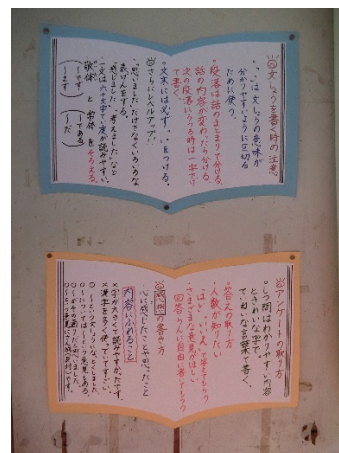 文しょうを書く時の注意
・「、」は文しょうの意味が
分かりやすいように区切る
ために使う。
・段落は話のまとまりで分ける。
話の内容が変わったら分ける。
次の段落にうつる時は一字下げ
て書く。
・文末には必ず「。」をつける。
さらにレベルアップ!
・「思いました」だけでなくいろいろな
表げんをする。
感じました 考えました など
・一文は六十文字ていどが読みやすい。
・敬体 と 常体 をそろえる。
(〜です) (〜である)
(〜ます) (〜だ)
アンケートの取り方
・とう問はわかりやすい内容
ときれいな字で
ていねいな言葉で書く。
・答えの取り方
・人数が知りたい
「はい」「いいえ」で答えてもらう
・さまざまな意見がほしい
回答らんに自由に書いてもらう
感想の書き方
心に感じたことや思ったこと
内容にふれること
×字が大きくて読みやすかったです。
×漢字を多く使っていてすごい。